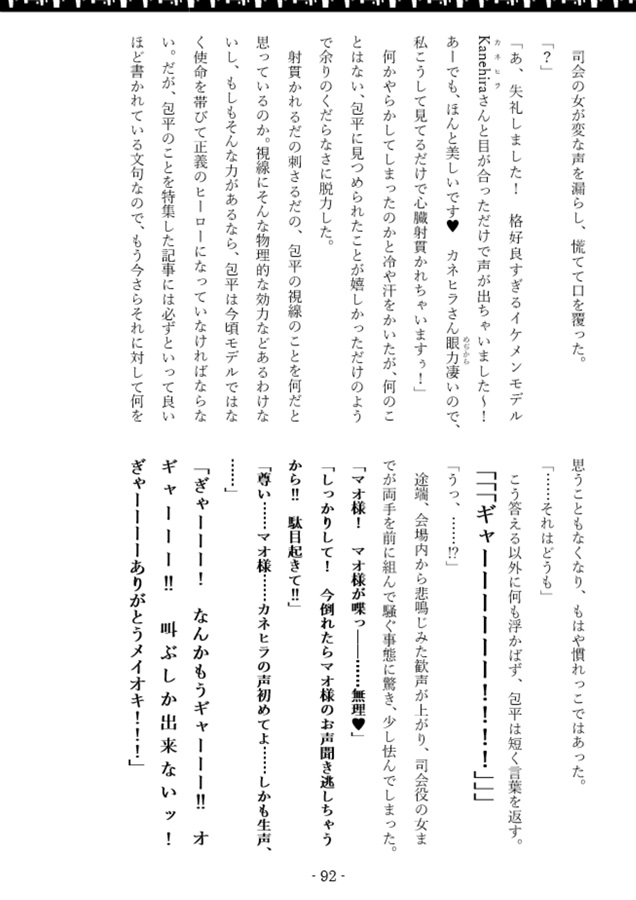 司会の女が変な声を漏らし、慌てて口を覆った。
「？」
「あ、失礼しました！　格好良すぎるイケメンモデル
カネヒラ
Kanehiraさんと目が合っただけで声が出ちゃいました～！
あーでも、ほんと美しいです♥　カネヒラさん眼力凄いので、
めぢから
私こうして見てるだけで心臓射貫かれちゃいますぅ！」
何かやらかしてしまったのかと冷や汗をかいたが、何のこ
とはない、包平に見つめられたことが嬉しかっただけのよう
で余りのくだらなさに脱力した。
射貫かれるだの刺さるだの、包平の視線のことを何だと
思っているのか。視線にそんな物理的な効力などあるわけな
いし、もしもそんな力があるなら、包平は今頃モデルではな
く使命を帯びて正義のヒーローになっていなければならな
い。だが、包平のことを特集した記事には必ずといって良い
ほど書かれている文句なので、もう今さらそれに対して何を
思うこともなくなり、もはや慣れっこではあった。
「……それはどうも」
こう答える以外に何も浮かばず、包平は短く言葉を返す。
「「「ギャーーーーーーー！！！！」」」
「うっ、……!?」
途端、会場内から悲鳴じみた歓声が上がり、司会役の女ま
でが両手を前に組んで騒ぐ事態に驚き、少し怯んでしまった。
「マオ様！　マオ様が喋っ――……無理♥」
「しっかりして！　今倒れたらマオ様のお声聞き逃しちゃう
から!!　駄目起きて!!」
「尊い……マオ様……カネヒラの声初めてよ……しかも生声、
……」
「ぎゃーーー！　なんかもうギャーーー!!　オ
ギャーーー!!　叫ぶしか出来ないッ！
ぎゃーーーーありがとうメイオキ！！！」
- 92 -